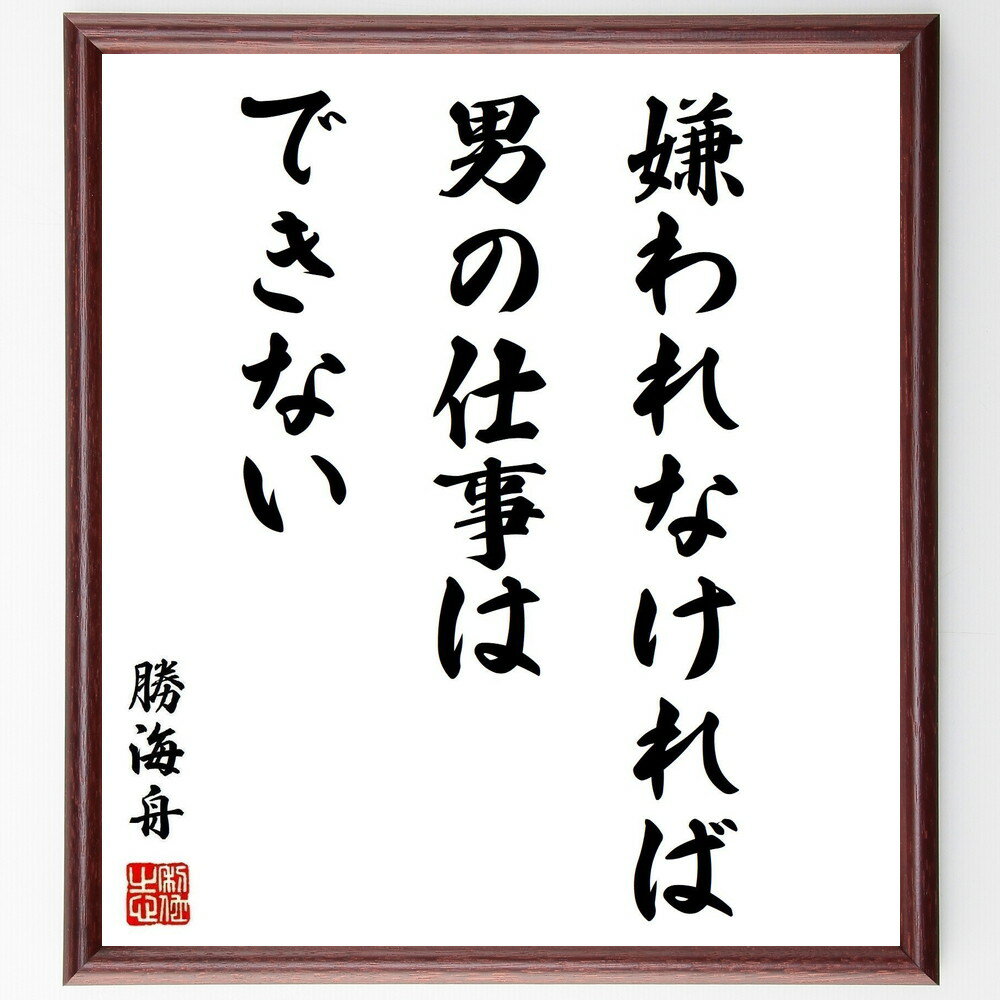 嫌われなければ
男の仕事は
できない
勝海舟